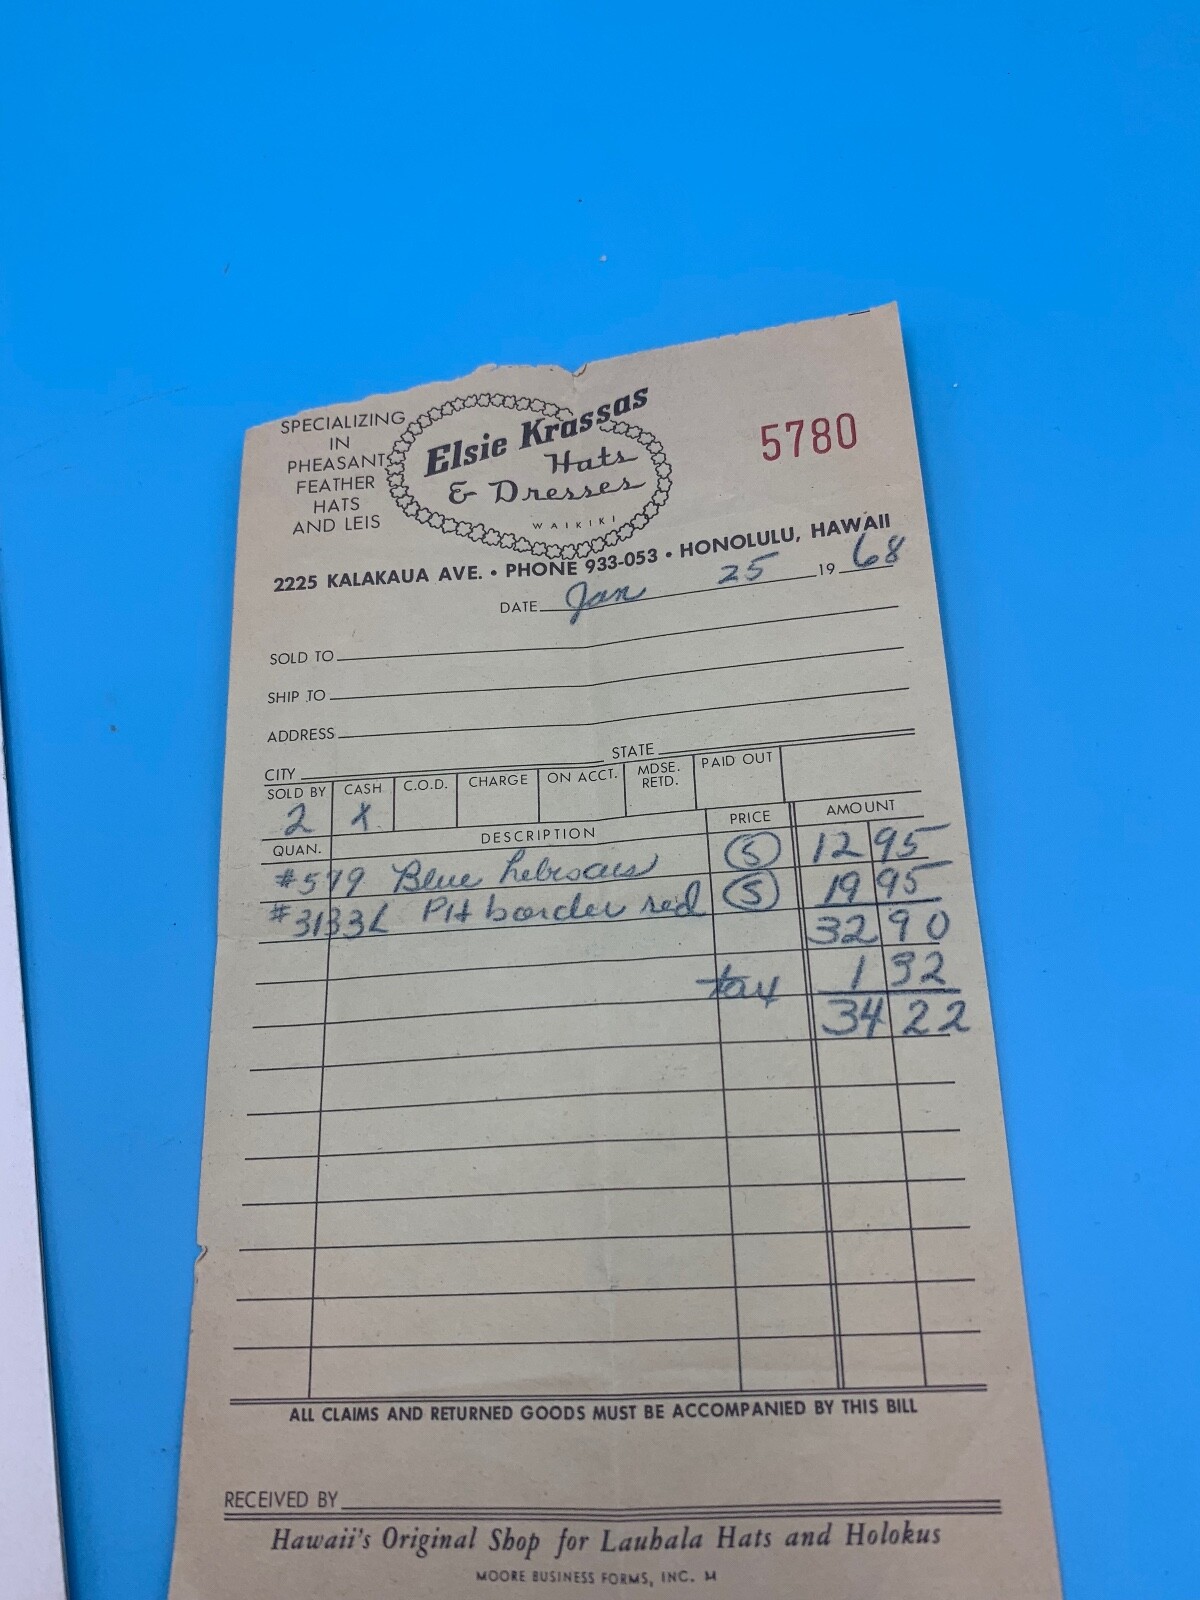 SPECIALIZING
IN
PHEASANT
FEATHER
HATS
AND LEIS
Elsie Krassas
Hats
& Dresses
WAIKIKI
5780
2225 KALAKAUA AVE. • PHONE 933-053 • HONOLULU, HAWAII
DATE Jan 25 19 68
SOLD TO
SHIP TO
ADDRESS
CITY STATE
SOLD BY CASH C.O.D. CHARGE ON ACCT. MDSE. RETD. PAID OUT
2 X
QUAN. DESCRIPTION PRICE AMOUNT
#579 Blue hebiscus S 12 95
#3133L PH border red S 19 95
32 90
tax 1 32
34 22
ALL CLAIMS AND RETURNED GOODS MUST BE ACCOMPANIED BY THIS BILL
RECEIVED BY
Hawaii's Original Shop for Lauhala Hats and Holokus
MOORE BUSINESS FORMS, INC. M